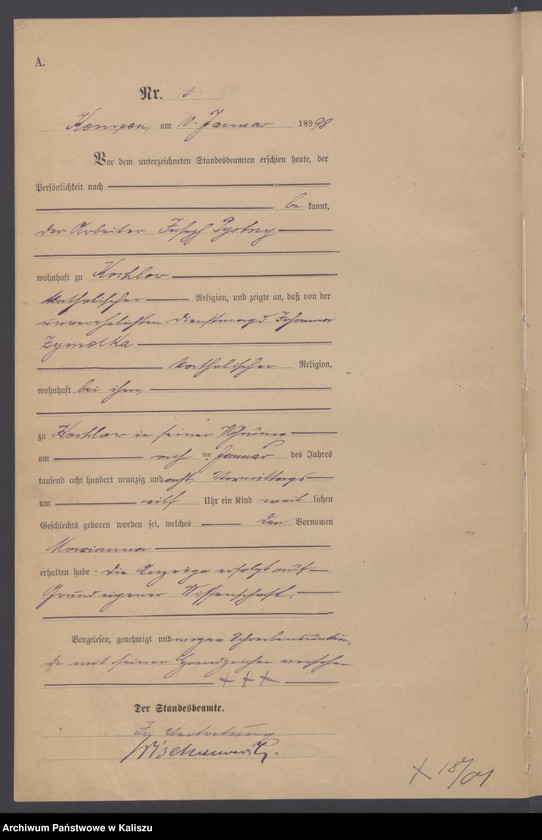 A.
Nr.
Kempen, am Januar 1898
Vor dem unterzeichneten Standesbeamten erschien heute, der
Persönlichkeit nach
be kannt,
der Arbeiter Joseph
wohnhaft zu Kochlow
katholischer Religion, und zeigte an, daß von der
unverehelichten Dienstmagd Johanna
Zymolka
katholischer Religion,
wohnhaft bei ihm
zu Kochlow in seiner Wohnung
am ten Januar des Jahres
tausend acht hundert neunzig und acht Vormittags
um elf Uhr ein Kind weib lichen
Geschlechts geboren worden sei, welches den Vornamen
Marianna
erhalten habe. Die Anzeige erfolgt auf
Grund eigener Wissenschaft.
Vorgelesen, genehmigt und wegen Schreibensunkun
de mit seinem Handzeichen versehen
+++
Der Standesbeamte.
In Vertretung
+ 18/01
Archiwum Państwowe w Kaliszu